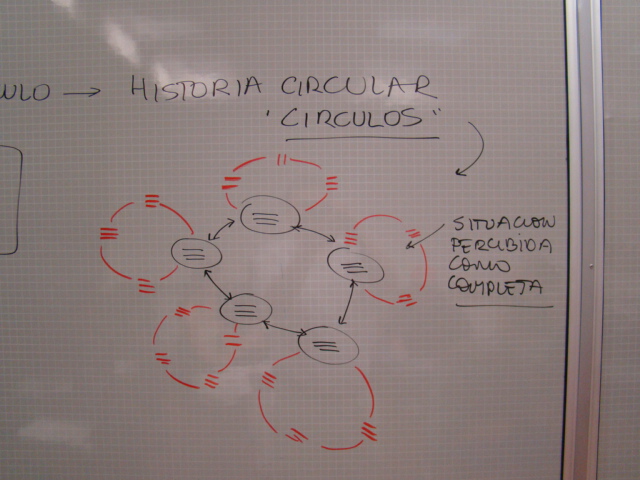 ULO → HISTORIA CIRCULAR
"CIRCULOS"
SITUACION
PERCIBIDA
COMO
COMPLETA